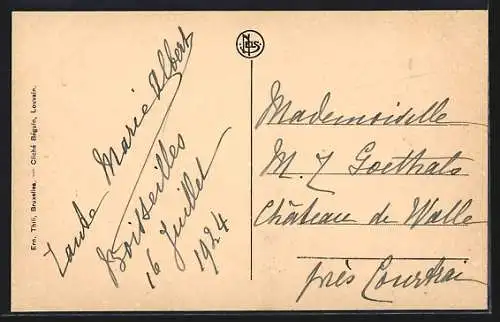 Ern. Thill, Bruxelles. — Cliché Béguin, Louvain.
NELS
Tante Marie Albert
Boisseilles
16 Juillet
1924
Mademoiselle
M. J Goethals
Château de Walle
près Courtrai